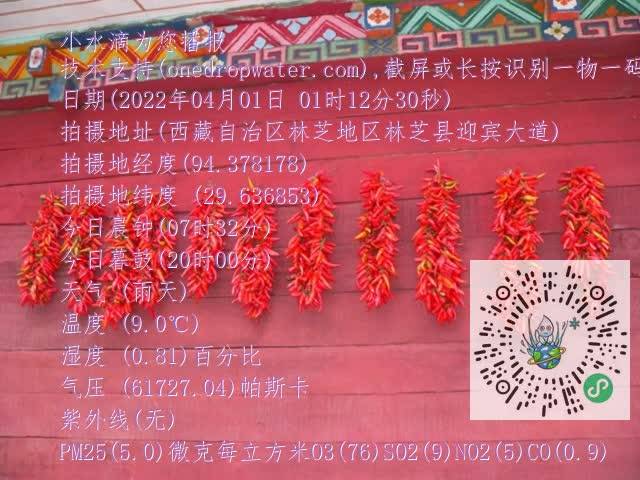 小水滴为您播报
技术支持(onedropwater.com),截屏或长按识别一物一码
日期(2022年04月01日 01时12分30秒)
拍摄地址(西藏自治区林芝地区林芝县迎宾大道)
拍摄地经度(94.378178)
拍摄地纬度 (29.636853)
今日晨钟(07时32分)
今日暮鼓(20时00分)
天气 (雨天)
温度 (9.0℃)
湿度 (0.81)百分比
气压 (61727.04)帕斯卡
紫外线(无)
PM25(5.0)微克每立方米O3(76)SO2(9)NO2(5)CO(0.9)